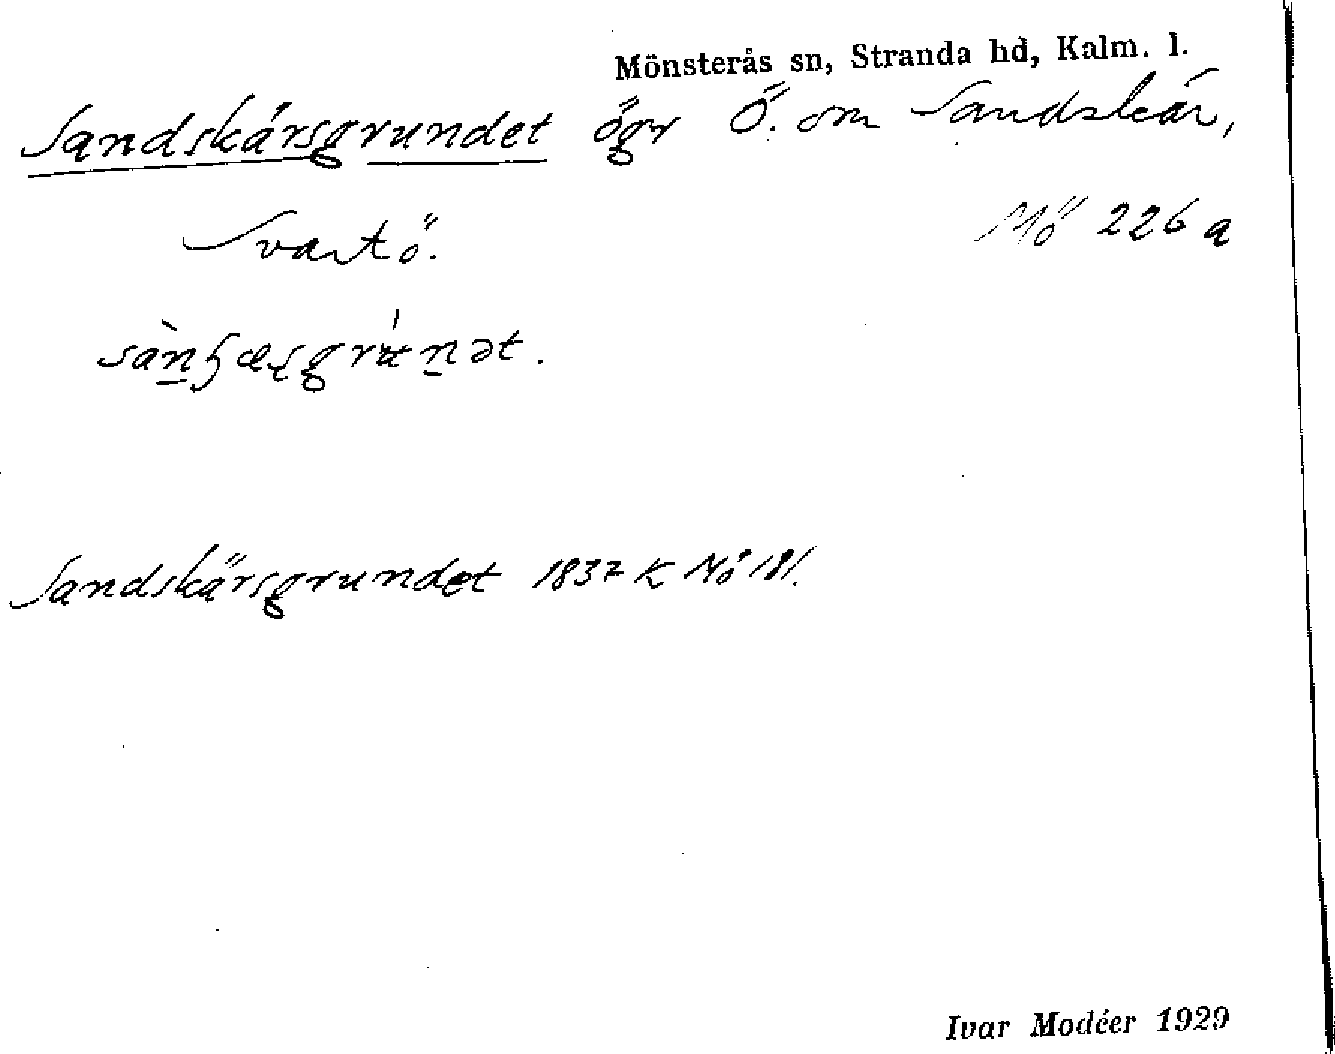 Mönsterås sn, Stranda hd, Kalm. l.
Sandskärsgrundet ögr Ö. om Sandskär,
Svartö. Mö 226 a
Sandskärsgrundet 1837 K Mö 181.
Ivar Modéer 1929